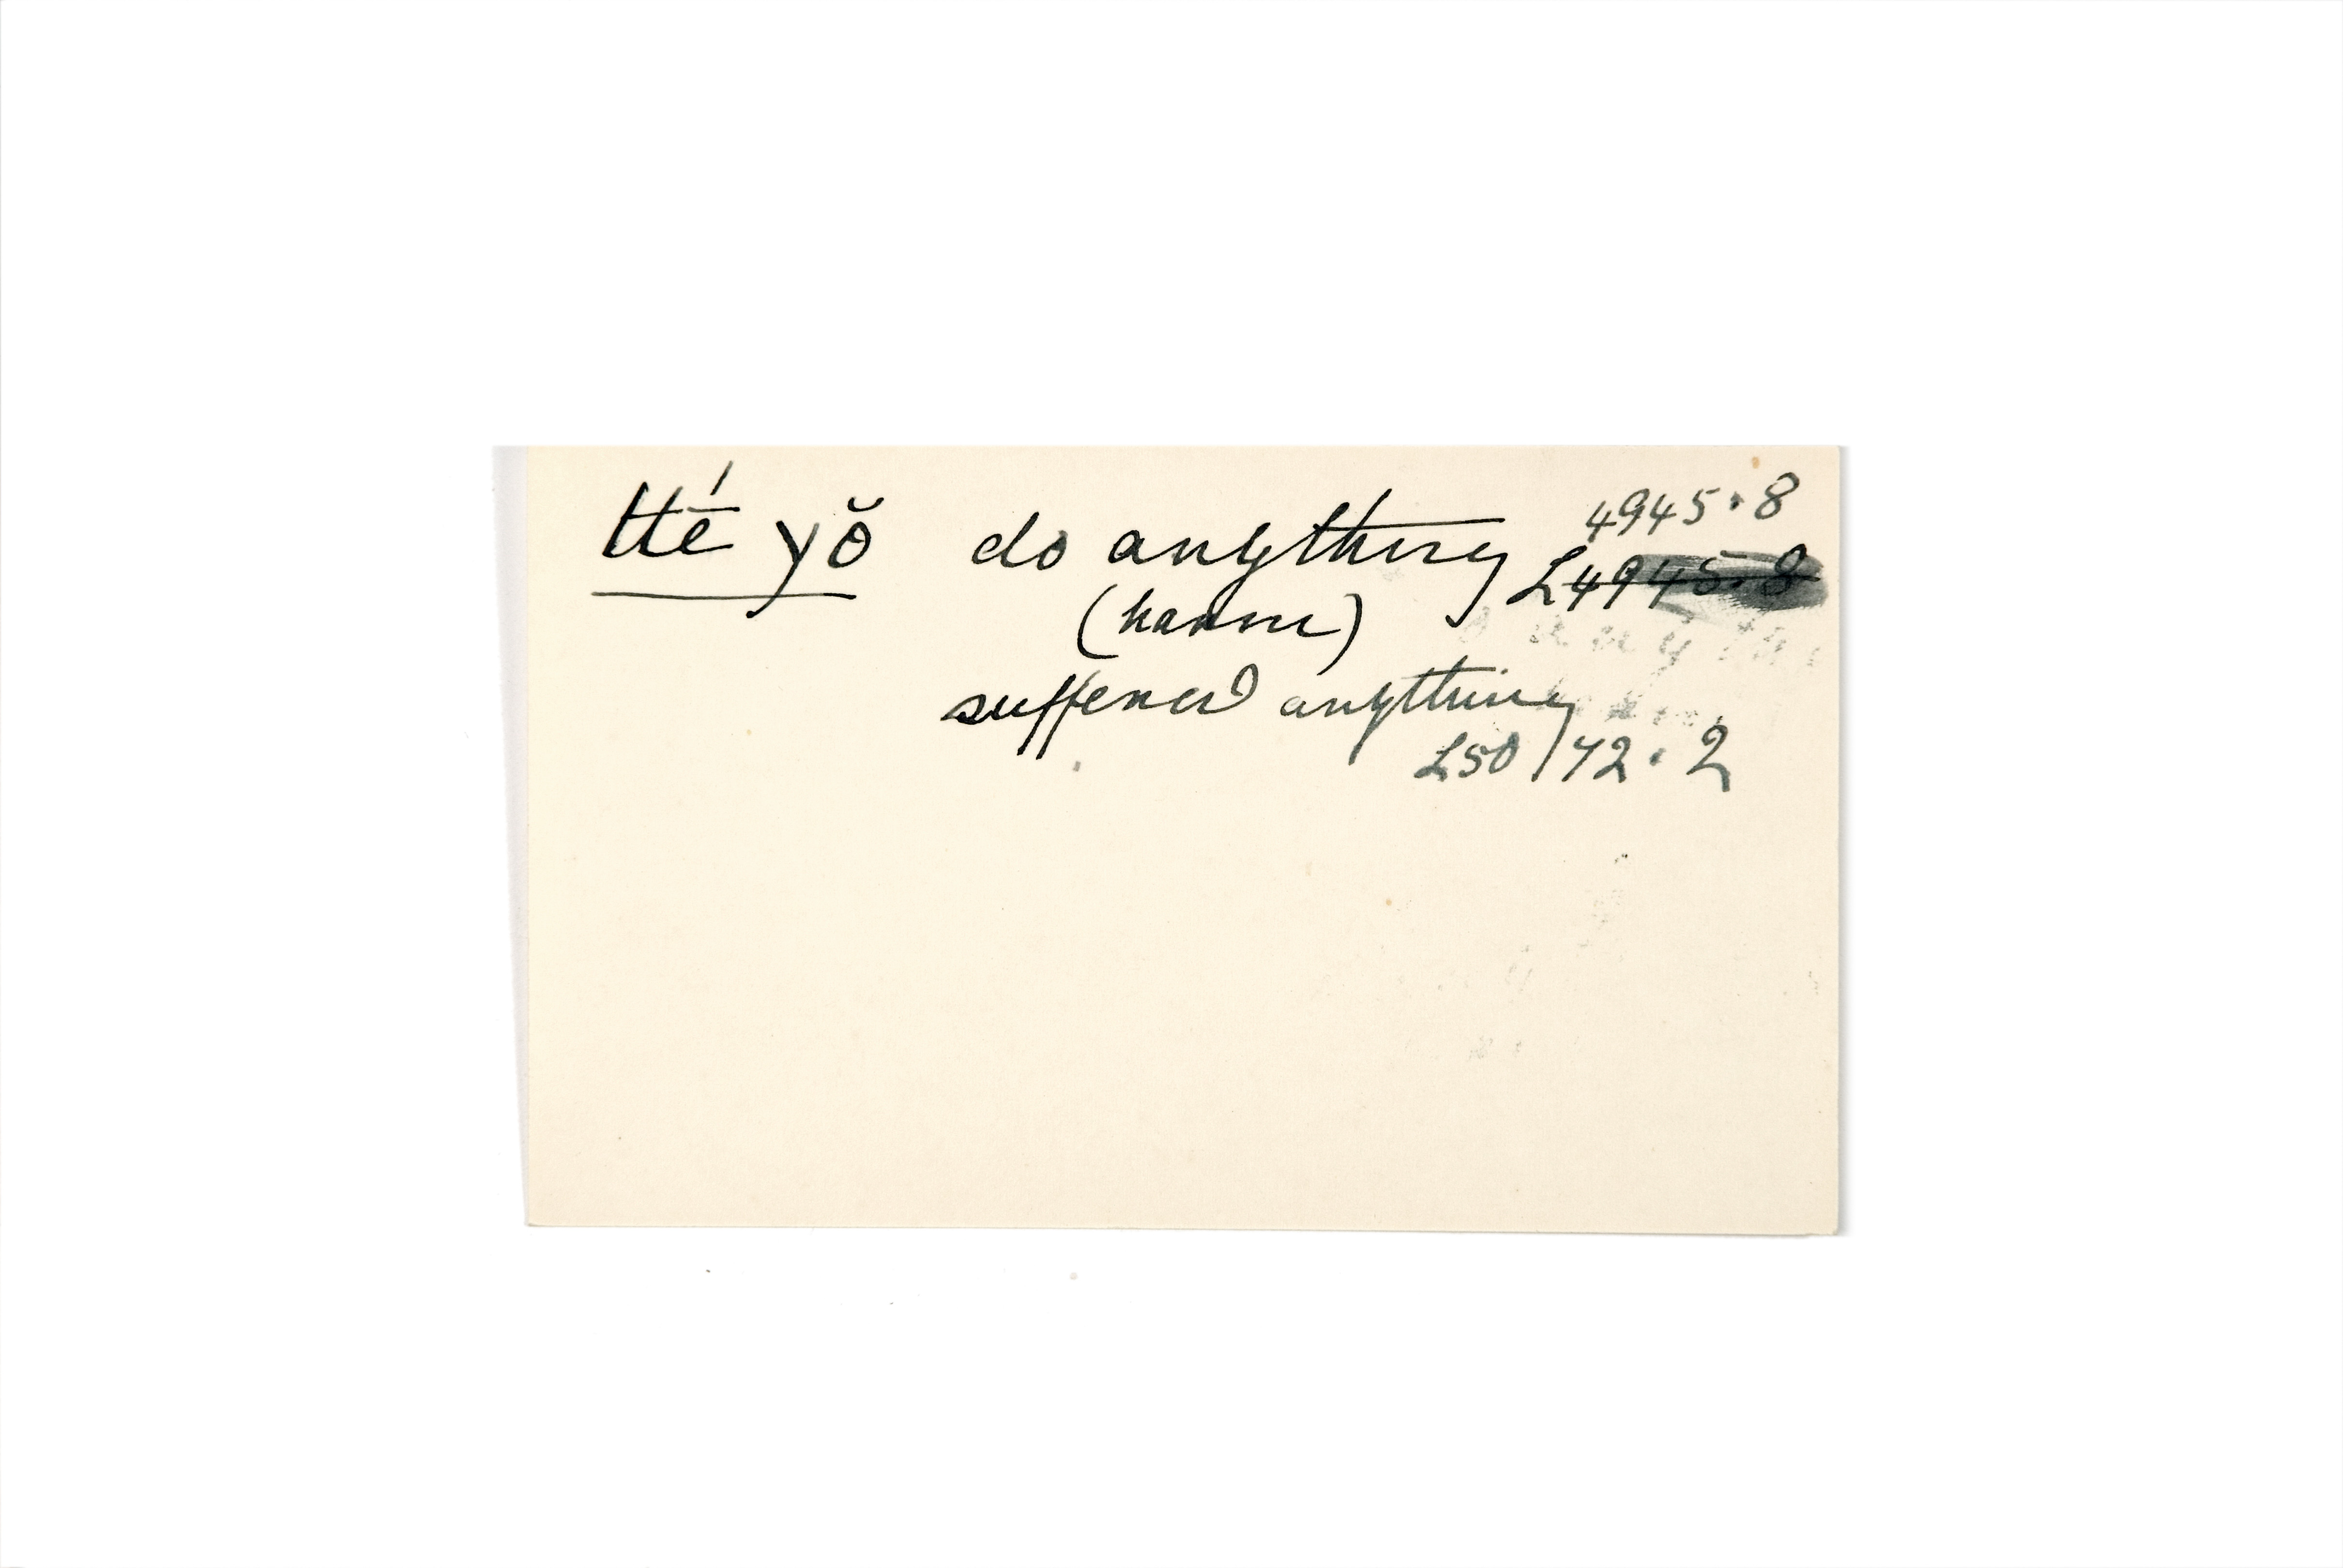 ttḗ yŏ do anything 4945·8
L 4945·8
(harm)
suffered anything
L5072·2